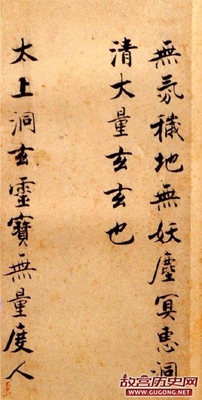 無氛穢地無妖塵冥慧洞
清大量玄玄也
太上洞玄靈寶無量度人
故宫历史网
www.GUGONG.net